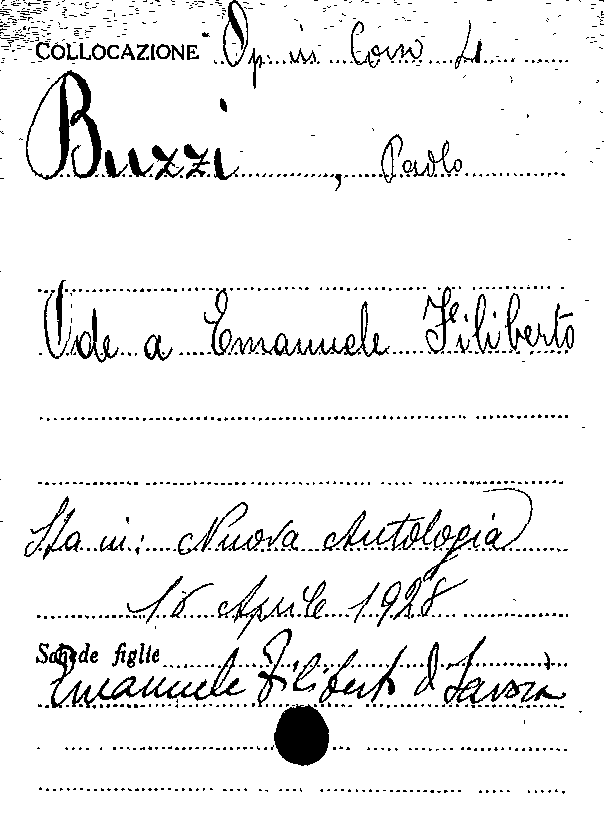 COLLOCAZIONE Op in Com 4
Buzzi, Paolo
Ode a Emanuele Filiberto
Sta in: Nuova Antologia
16 Aprile 1928
Schede figlie
Emanuele Filiberto d Savoia